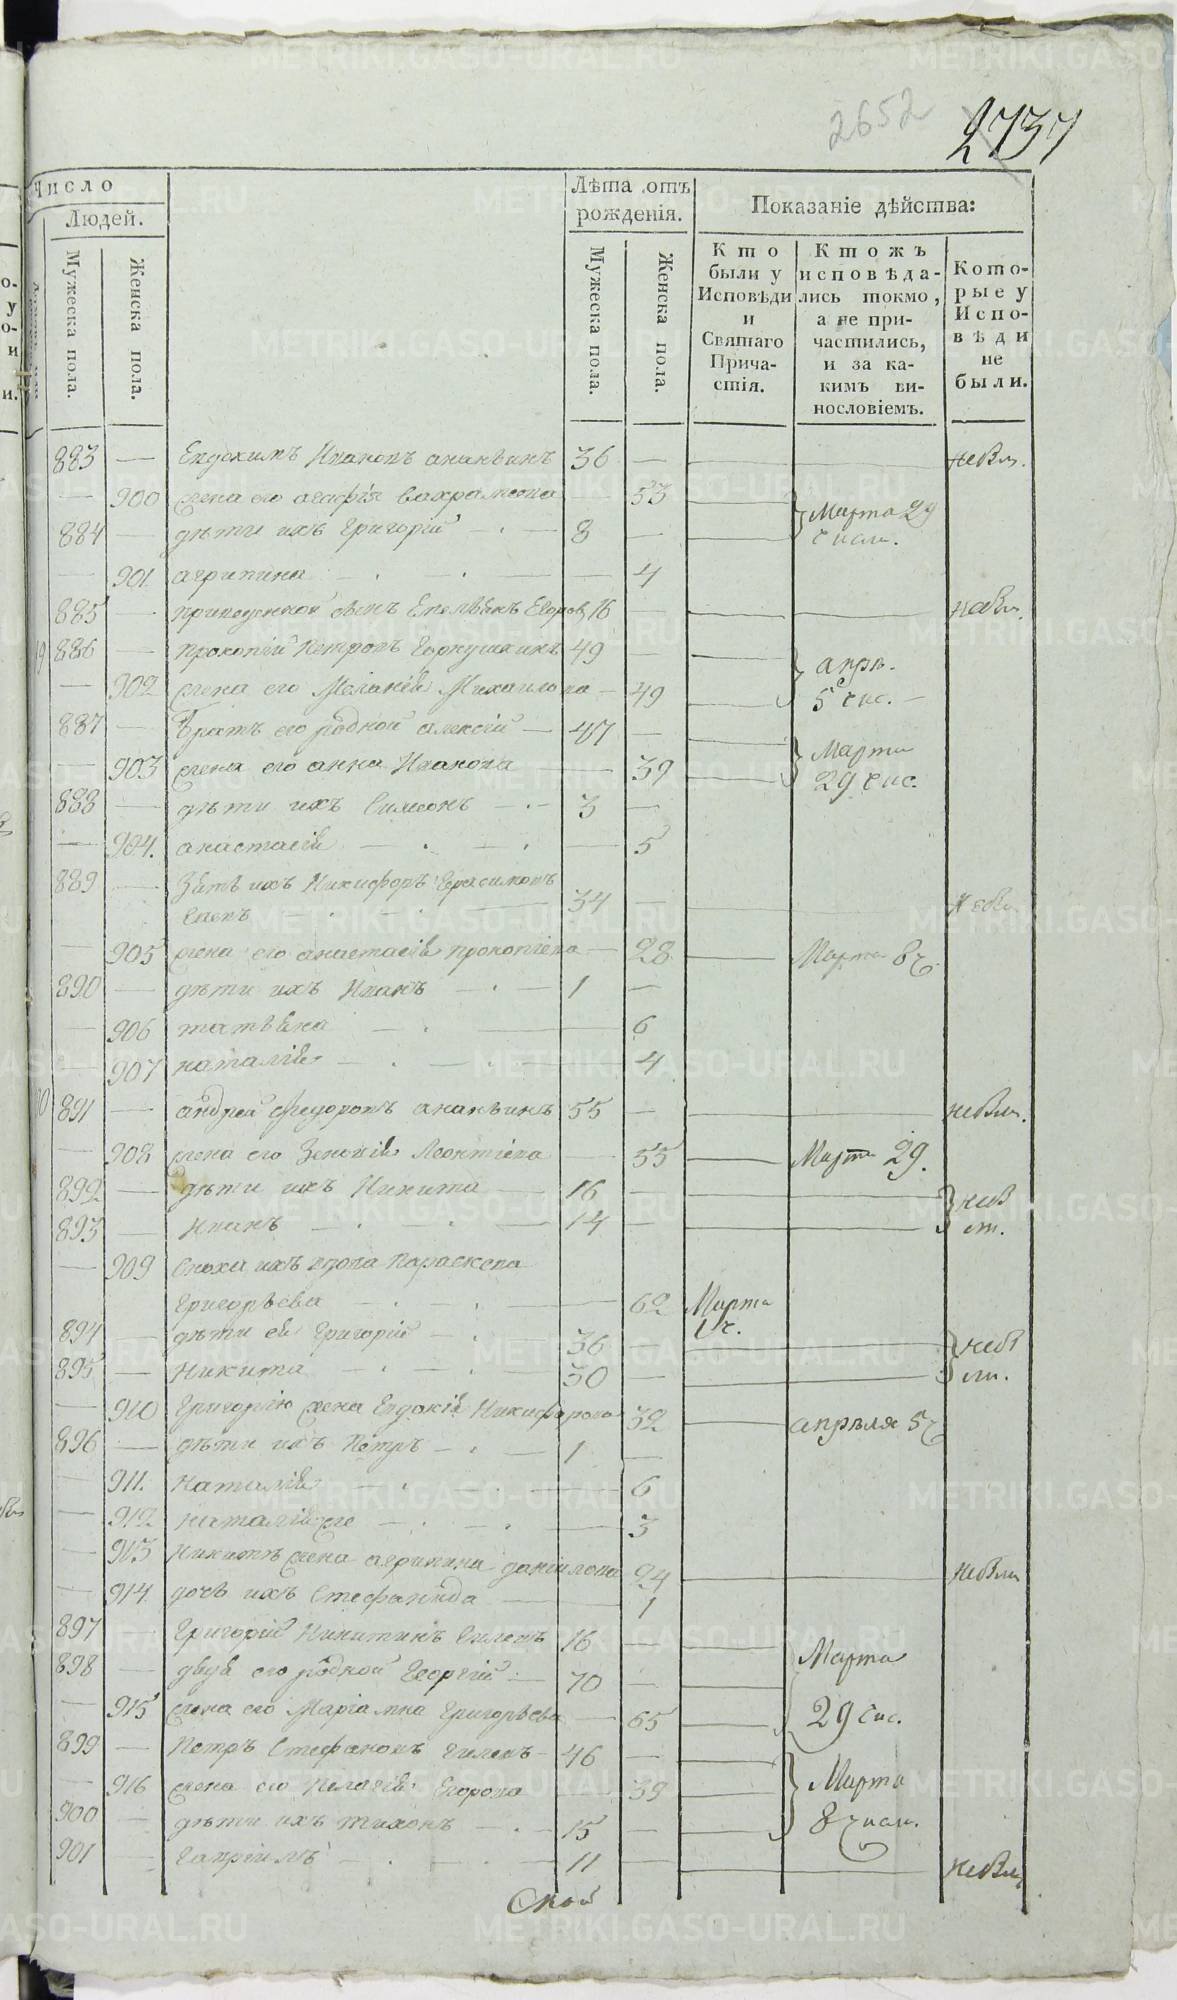 2652
2737
Число
Людей.
Мужеска пола.
Женска пола.
Лѣта отъ рожденія.
Мужеска пола.
Женска пола.
Показаніе дѣйства:
Кто были у Исповѣди и Святаго Причастія.
Ктожъ исповѣдались токмо, а не причастились, и за какимъ винословіемъ.
Которые у Исповѣди не были.
883 — Евдокимъ Ивановъ ананьинъ 36 — небы.
— 900 жена его агафія Вахрамѣева — 53
884 — дѣти ихъ Григорій 8 — Марта 29 числ.
— 901 агрипина — 4
885 — приведенной сынъ Егоровъ 16 — небы.
886 — прокопій Петровъ 49 — апрѣ.
— 902 жена его Меланія Михаилова — 49 5 чис.
887 — братъ его родной алексій — 47 — Марта
— 903 жена его анна Иванова — 39 29 чис.
888 — дѣти ихъ Симеонъ 3 —
— 904. анастасія — 5
889 — Зять ихъ Никифоръ Герасимовъ
34 — небы
— 905 жена его анастасія прокопіева — 28 Марта 8 ч.
890 — дѣти ихъ Иванъ 1 —
— 906 татьяна — 6
— 907 наталія — 4
891 — андрей федоровъ ананьинъ 55 — небы.
— 908 жена его Зеновія Леонтіева — 55 Марта 29.
892 — дѣти ихъ Никита 16 — неб
893 — Иванъ 14 —
— 909 Сноха ихъ вдова Параскева
Григорьева — 62 Марта 1 ч.
894 — дѣти ея Григорій 36 — небы
895 — Никита 30 — ли.
— 910 Григорію жена Евдокія Никифорова 32 апрѣля 5 ч
896 — дѣти ихъ Петръ 1 —
— 911. Наталія — 6
— 912 наталія же — 3
— 913 Никитѣ жена агрипина даніилова 24 небы
— 914 дочь ихъ Стефанида — 1
897 — Григорій Никитинъ 16 — Марта
898 — дядя его родной Георгій — 70 — 29 чис.
— 915 жена его Маріамна Григорьева — 65
899 — Петръ Стефановъ — 46 — Марта
— 916 жена его Пелагія Егорова — 39 8 числ.
900 — дѣти ихъ тихонъ 15 —
901 — Гавріилъ 11 — небы
Ской
METRIKI.GASO-URAL.RU